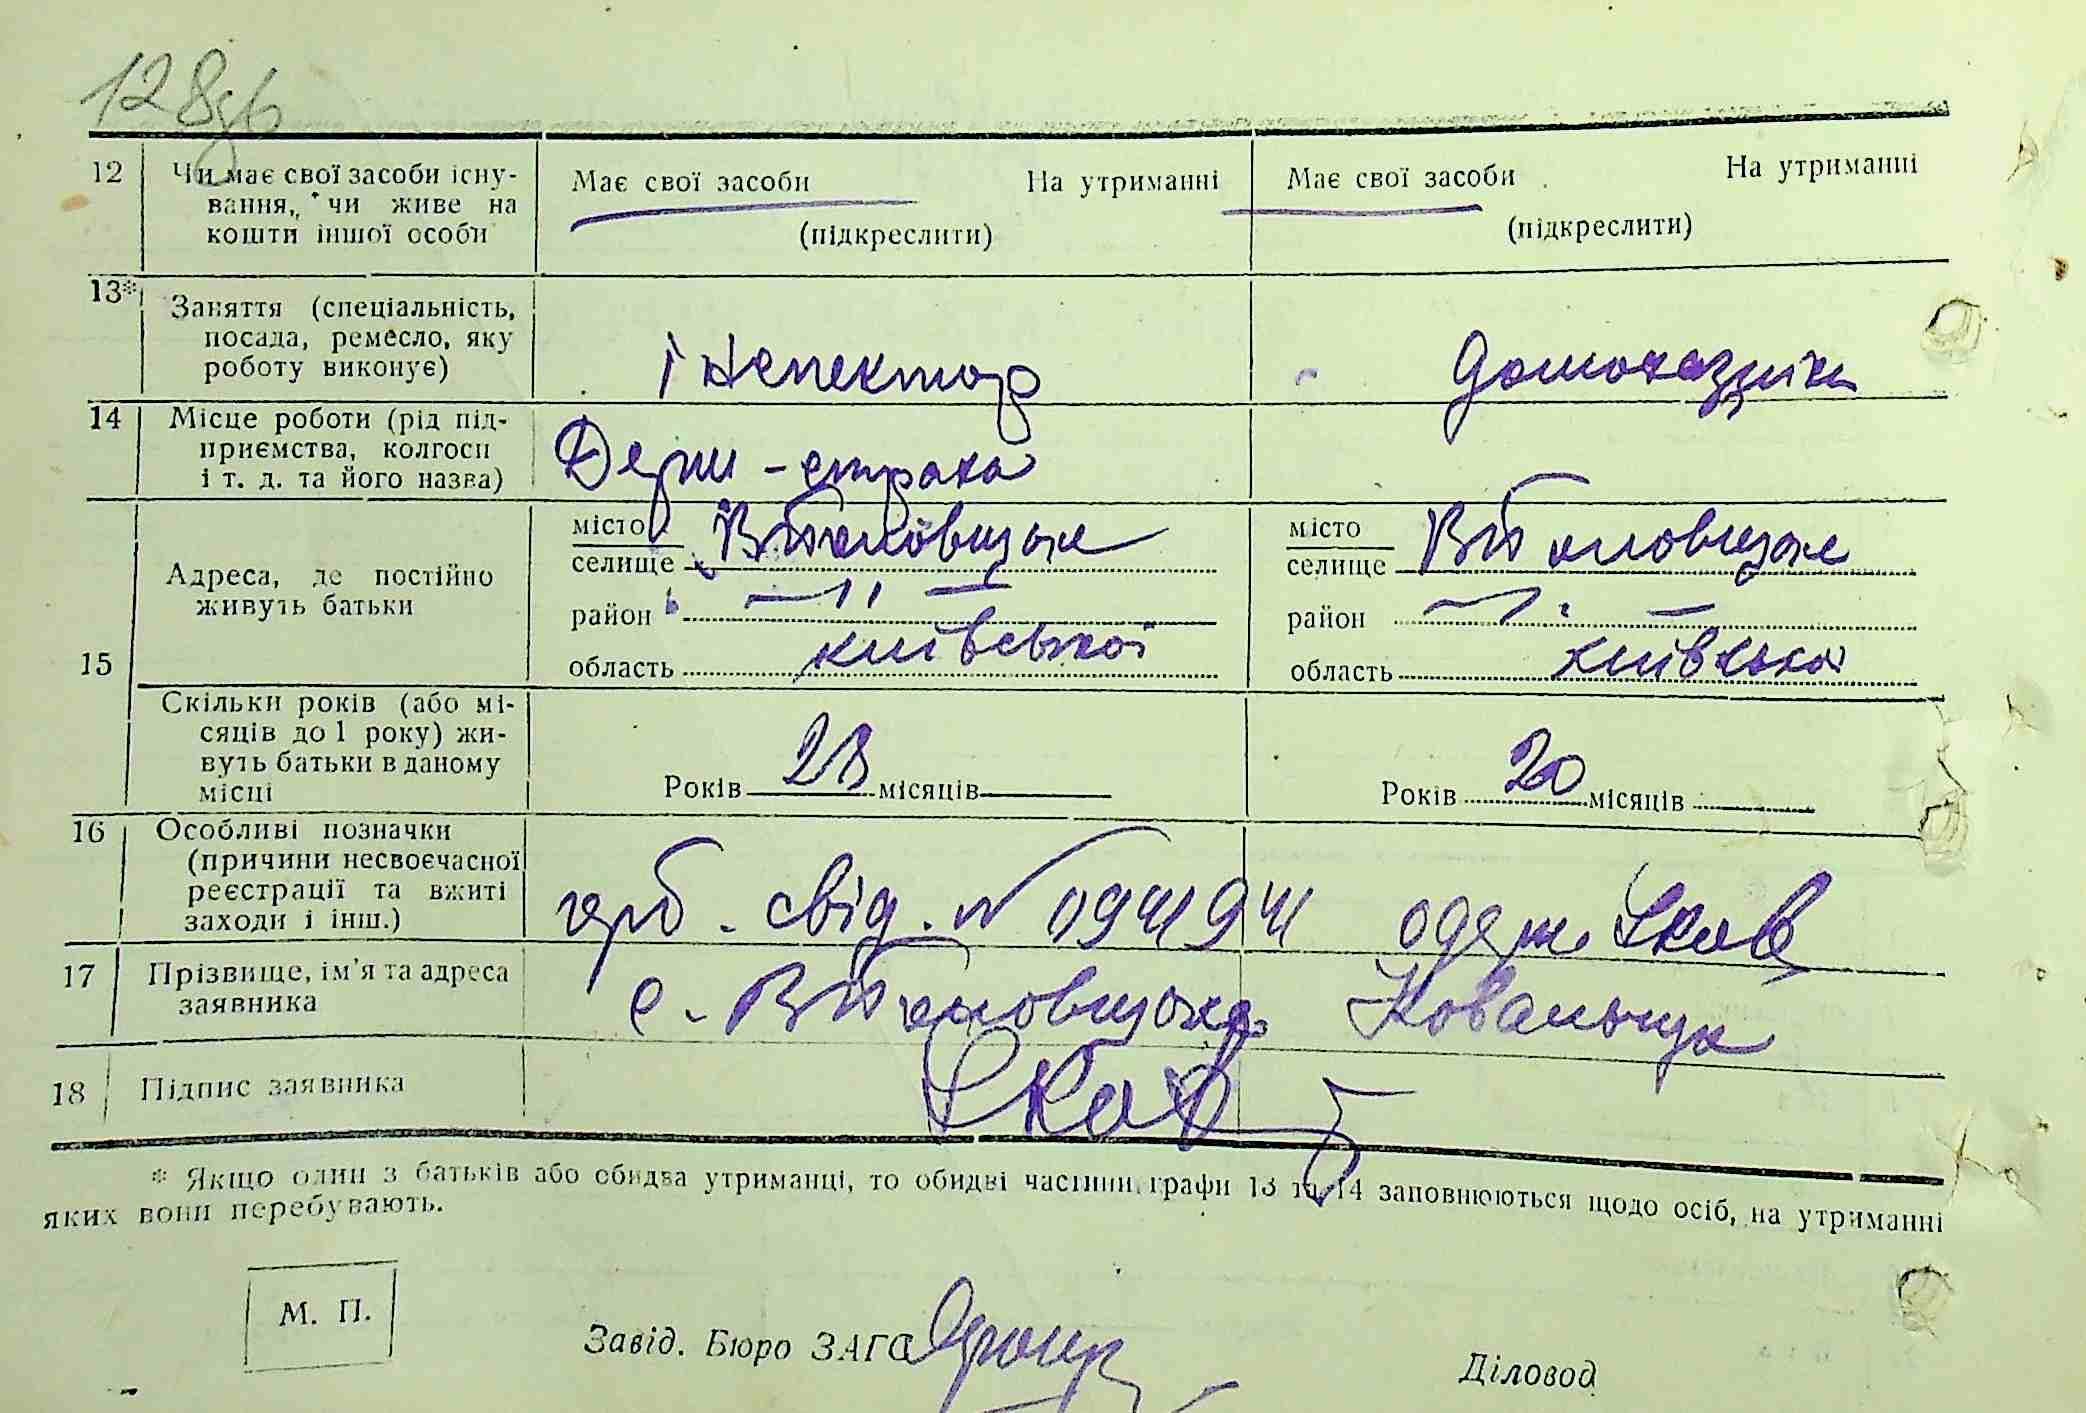 128зв
12 Чи має свої засоби існу-
вання, чи живе на
кошти іншої особи
Має свої засоби На утриманні
(підкреслити)
Має свої засоби На утриманні
(підкреслити)
13* Заняття (спеціальність,
посада, ремесло, яку
роботу виконує)
інспектор
домохазяйка
14 Місце роботи (рід під-
приємства, колгосп
і т. д. та його назва)
Держ-страха
15 Адреса, де постійно
живуть батьки
місто
селище
район — 11 —
область київської
місто
селище
район — 11 —
область київська
Скільки років (або мі-
сяців до 1 року) жи-
вуть батьки в даному
місці
Років 28 місяців
Років 20 місяців
16 Особливі позначки
(причини несвоєчасної
реєстрації та вжиті
заходи і інш.)
герб. свід. № 094194 одерж.
17 Прізвище, ім'я та адреса
заявника
с.
18 Підпис заявника
* Якщо один з батьків або обидва утриманці, то обидві частини графи 13 та 14 заповнюються щодо осіб, на утриманні
яких вони перебувають.
М. П.
Завід. Бюро ЗАГС
Діловод